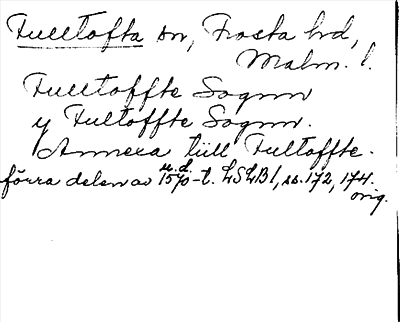 Fulltofta sn, Frosta hd,
Malm. l.
Fulltoffte Sognn
y Fultoffte Sognn.
Annexa tiill Fultoffte.
u.d.
förra delen av 1570-t. LSLB 1, ss. 172, 174.
orig.